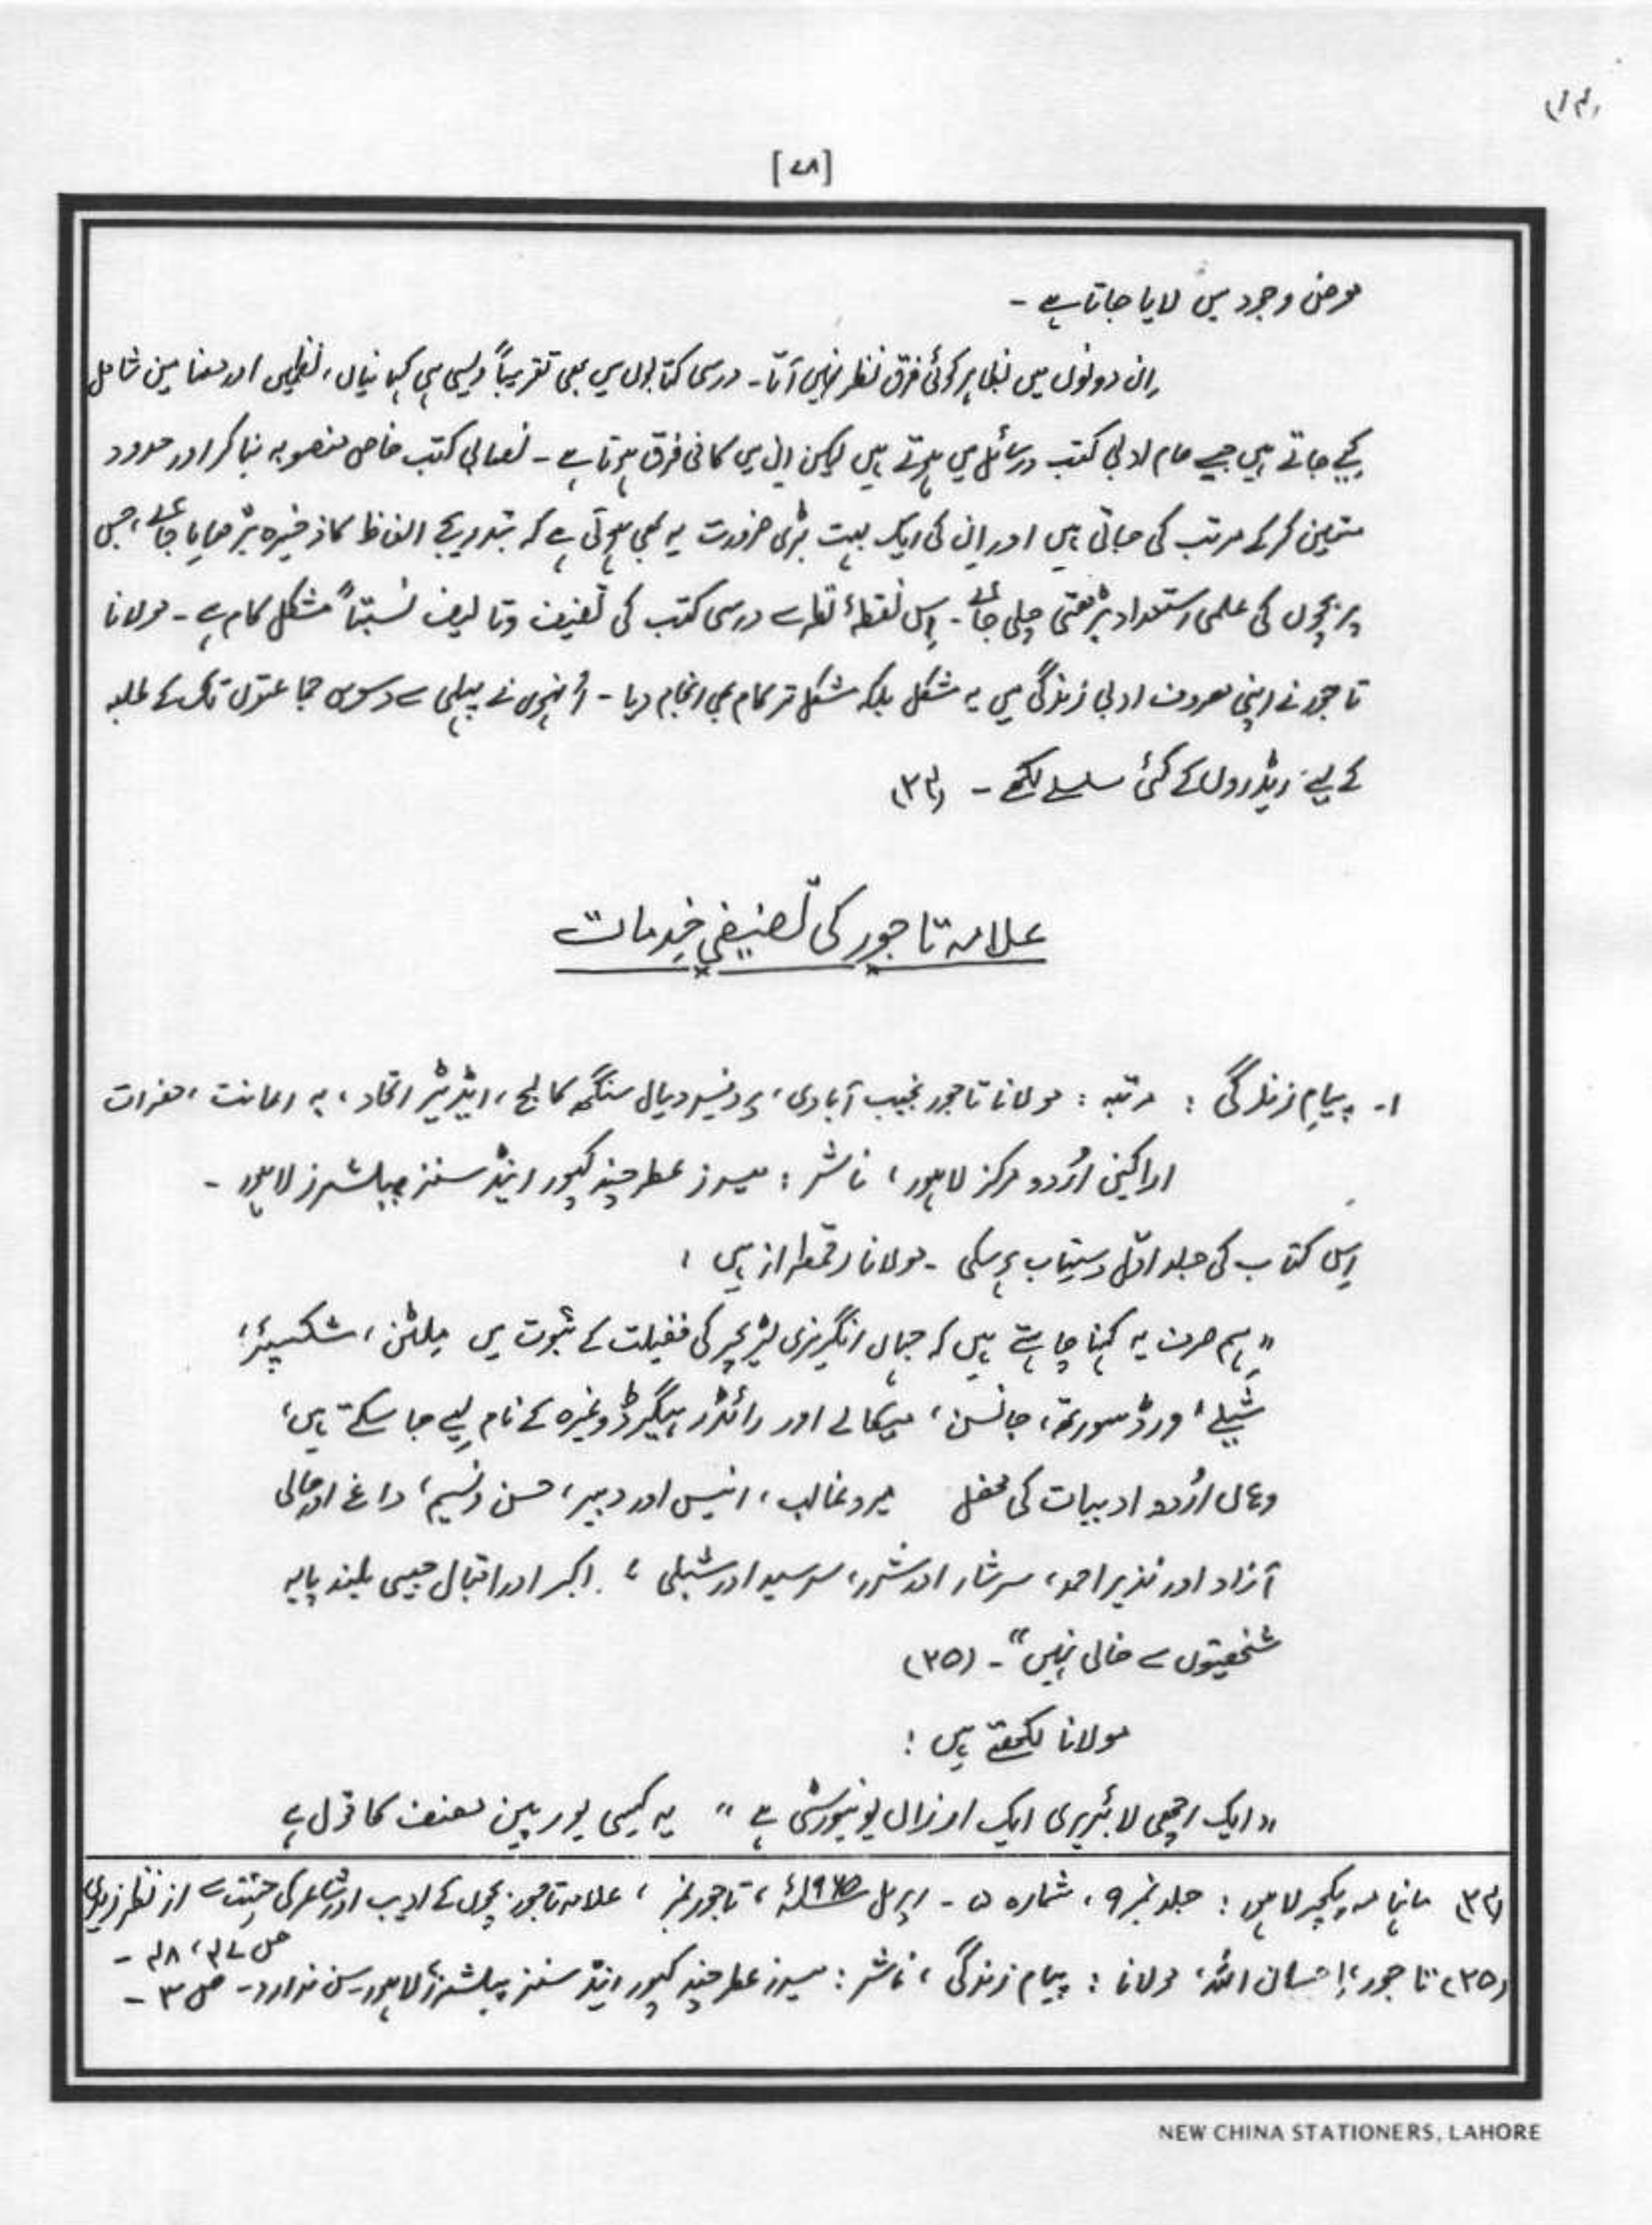 (۱۴)
[۷۸]
معرضِ وجود میں لایا جاتا ہے ۔
اِن دونوں میں بظاہر کوئی فرق نظر نہیں آتا ۔ درسی کتابوں میں بھی تقریباً ویسی ہی کہانیاں، نظمیں اور مضامین شامل
کیے جاتے ہیں جیسے عام ادبی کتب و رسائل میں ہوتے ہیں لیکن اِن میں کافی فرق ہوتا ہے ۔ نصابی کتب خاص منصوبہ بنا کر اور حدود
متعین کرکے مرتب کی جاتی ہیں اور اِن کی ایک بہت بڑی ضرورت یہ بھی ہوتی ہے کہ بتدریج الفاظ کا ذخیرہ بڑھایا جائے، جس
پر بچوں کی علمی استعداد بڑھتی چلی جائے ۔ اِس نقطۂ نظر سے درسی کتب کی تصنیف و تالیف نسبتاً مشکل کام ہے ۔ مولانا
تاجور نے اپنی مصروف ادبی زندگی میں یہ مشکل بلکہ مشکل تر کام بھی انجام دیا ۔ اُنہوں نے پہلی سے دسویں جماعتوں تک کے طلبہ
کے لیے ریڈروں کے کئی سلسلے لکھے ۔ (۳۴)
علامہ تاجور کی تصنیفی خدمات
۱۔ پیامِ زندگی : مرتبہ : مولانا تاجور نجیب آبادی، پروفیسر دیال سنگھ کالج، ایڈیٹر اتحاد، بہ اعانت، حضرات
اراکینِ اُردو مرکز لاہور، ناشر : میسرز عطر چند کپور اینڈ سنز پبلشرز لاہور ۔
اِس کتاب کی جلد اوّل دستیاب ہو سکی ۔ مولانا رقمطراز ہیں :
”ہم صرف یہ کہنا چاہتے ہیں کہ جہاں انگریزی لٹریچر کی فضیلت کے ثبوت میں ملٹن، شکسپئر،
شیلے، ورڈسورتھ، جانسن، میکالے اور رائڈر ہیگرڈ وغیرہ کے نام لیے جا سکتے ہیں،
وہاں اُردو ادبیات کی محفل میر و غالب، انیس اور دبیر، حسن و نسیم، داغ اور حالی
آزاد اور نذیر احمد، سرشار اور شرر، سرسید اور شبلی، اکبر اور اقبال جیسی بلند پایہ
شخصیتوں سے خالی نہیں“ ۔ (۳۵)
مولانا لکھتے ہیں :
”ایک اچھی لائبریری ایک ارزاں یونیورسٹی ہے“ یہ کسی یورپین مصنف کا قول ہے
(۳۴) ماہنامہ پکچر لاہور : جلد نمبر ۹، شمارہ ۵ ۔ اپریل ۱۹۷۵ء، تاجور نمبر، علامہ تاجور بچوں کے ادیب اور شاعر کی حیثیت سے از نظر زیدی
ص ۴۷، ۴۸ ۔
(۳۵) تاجور، اِحسان اللہ، مولانا : پیامِ زندگی، ناشر : میسرز عطر چند کپور اینڈ سنز پبلشرز لاہور سن ندارد ۔ ص ۳ ۔
NEW CHINA STATIONERS, LAHORE